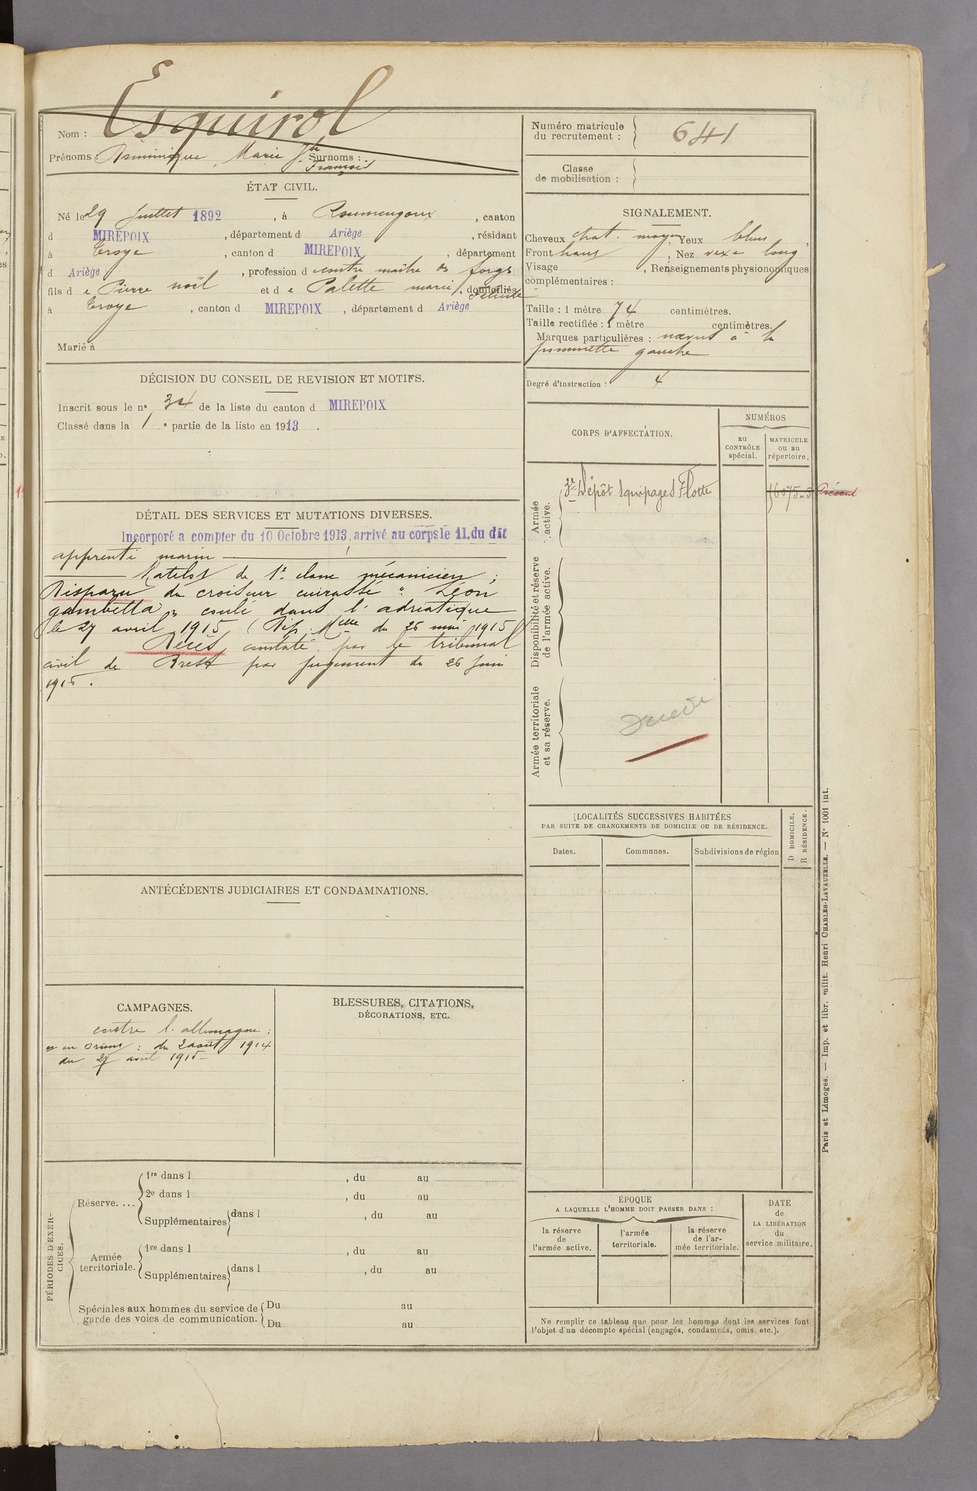 Nom : Esquirol
Prénoms : Dominique Marie Jh François Surnoms :
ÉTAT CIVIL.
Né le 29 Juillet 1892, à Roumengoux, canton
d MIREPOIX, département d Ariège, résidant
à Troye, canton d MIREPOIX, département
d Ariège, profession d contre maître de forges
fils d e Pierre noël et d e Palette marie, Félicité domiciliés
à Troye, canton d MIREPOIX, département d Ariège
Marié à
DÉCISION DU CONSEIL DE REVISION ET MOTIFS.
Inscrit sous le n° 34 de la liste du canton d MIREPOIX
Classé dans la 1e partie de la liste en 1913.
DÉTAIL DES SERVICES ET MUTATIONS DIVERSES.
Incorporé a compter du 10 Octobre 1913, arrivé au corps le 11 du dit
apprenti marin
Matelot de 1e classe mécanicien ;
Disparu du croiseur cuirassé " Léon
gambetta " coulé dans l'adriatique
le 27 avril 1915 (Dép. Mlle du 26 mai 1915)
Décès constaté par le tribunal
civil de Brest par jugement du 26 Juin
1915.
ANTÉCÉDENTS JUDICIAIRES ET CONDAMNATIONS.
CAMPAGNES.
contre l'allemagne :
: du 2 août 1914
au 27 avril 1915
BLESSURES, CITATIONS,
DÉCORATIONS, ETC.
PÉRIODES D'EXERCICES.
Réserve....
1re dans l , du au
2e dans l , du au
Supplémentaires dans l , du au
Armée territoriale.
1re dans l , du au
Supplémentaires dans l , du au
Spéciales aux hommes du service de Du au
garde des voies de communication. Du au
Numéro matricule
du recrutement : 641
Classe
de mobilisation :
SIGNALEMENT.
Cheveux chat. moyen, Yeux bleus,
Front haut, Nez vexe long
Visage , Renseignements physionomiques
complémentaires :
Taille : 1 mètre 74 centimètres.
Taille rectifiée : 1 mètre centimètres.
Marques particulières : nævus à la
pommette gauche
Degré d'instruction : 4
CORPS D'AFFECTATION.
NUMÉROS
au
CONTRÔLE
spécial.
MATRICULE
ou au
répertoire.
Armée
active.
3e Dépôt Equipages Flotte
16075-5
Disponibilité et réserve
de l'armée active.
Armée territoriale
et sa réserve.
Décédé
LOCALITÉS SUCCESSIVES HABITÉES
PAR SUITE DE CHANGEMENTS DE DOMICILE OU DE RÉSIDENCE.
D DOMICILE.
R RÉSIDENCE.
Dates.
Communes.
Subdivisions de région
ÉPOQUE
A LAQUELLE L'HOMME DOIT PASSER DANS :
la réserve
de
l'armée active.
l'armée
territoriale.
la réserve
de l'ar-
mée territoriale.
DATE
de
LA LIBÉRATION
du
service militaire.
Ne remplir ce tableau que pour les hommes dont les services font
l'objet d'un décompte spécial (engagés, condamnés, omis, etc.).
Paris et Limoges. — Imp. et libr. milit. Henri CHARLES-LAVAUZELLE. — N° 1001 int.